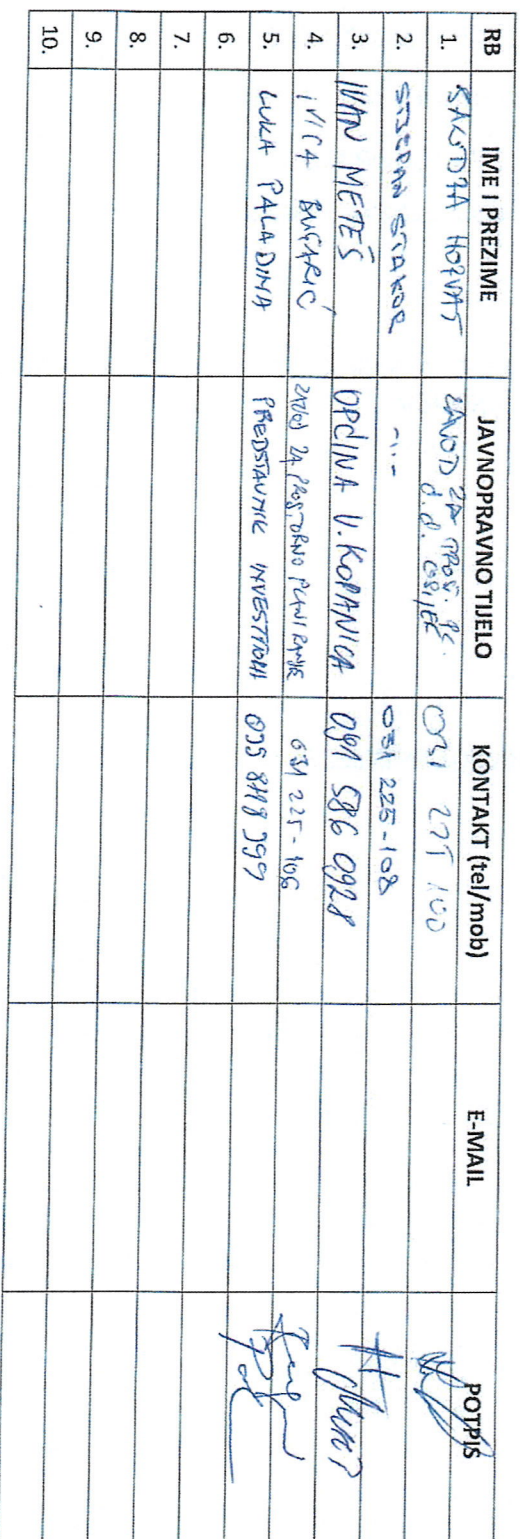 RB IME I PREZIME JAVNOPRAVNO TIJELO KONTAKT (tel/mob) E-MAIL POTPIS
1. HORVAT ZAVOD ZA PROST. d.d. OSIJEK 031 225 100
2. STJEPAN STAKOR -"- 031 225-108
3. IVAN METEŠ OPĆINA V. KOPANICA 091 586 0928
4. IVICA BUGARIĆ ZAVOD ZA PROSTORNO PLANIRANJE 031 225-106
5. LUKA PALADINA PREDSTAVNIK INVESTITORA
6.
7.
8.
9.
10.